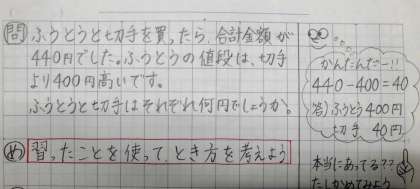 問 ふうとうと切手を買ったら、合計金額が
440円でした。ふうとうの値段は、切手
より400円高いです。
ふうとうと切手はそれぞれ何円でしょうか。
かんたんだー!!
440-400=40
答)ふうとう400円
切手 40円
め 習ったことを使って、とき方を考えよう
本当にあってる??
たしかめてみよう